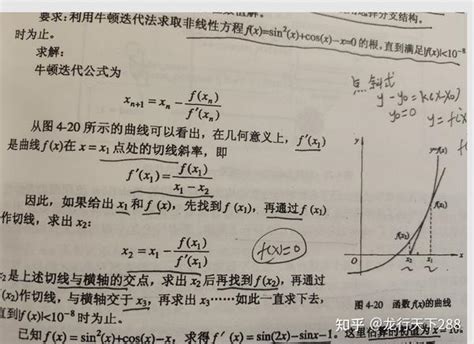 要求:利用牛顿迭代法求取非线性方程f(x)=sin²(x)+cos(x)-x=0的根,直到满足|f(x)|<10⁻⁸
时为止。
求解:
牛顿迭代公式为
xₙ₊₁ = xₙ - f(xₙ)/f'(xₙ)
从图 4-20 所示的曲线可以看出,在几何意义上,f'(x₁)
是曲线 f(x)在 x = x₁ 点处的切线斜率,即
f'(x₁) = f(x₁)/(x₁ - x₂)
因此,如果给出 x₁ 和 f(x),先找到 f(x₁),再通过 f(x₁)
作切线,求出 x₂:
x₂ = x₁ - f(x₁)/f'(x₁)
x₂是上述切线与横轴的交点,求出 x₂ 后再找到 f(x₂),再通过
f(x₂)作切线,与横轴交于 x₃,再求出 x₃……如此一直求下去,
直到|f(x)|<10⁻⁸ 时为止。
已知 f(x) = sin²(x)+cos(x)-x,求得 f'(x) = sin(2x)-sinx-1。这里估算的初值为 x = 10。
f(x)=0
点斜式
y-y₀=k(x-x₀)
y₀=0
y=f(x
y=f(x)
f(x₁)
f(x₂)
0
x₂
x₁
x
图 4-20 函数 f(x)的曲线
知乎 @龙行天下288